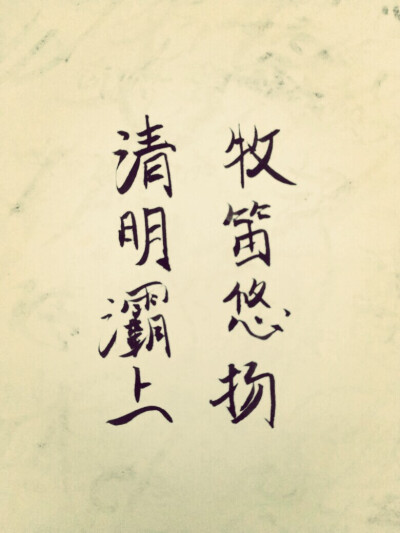 牧笛悠扬
清明灞上